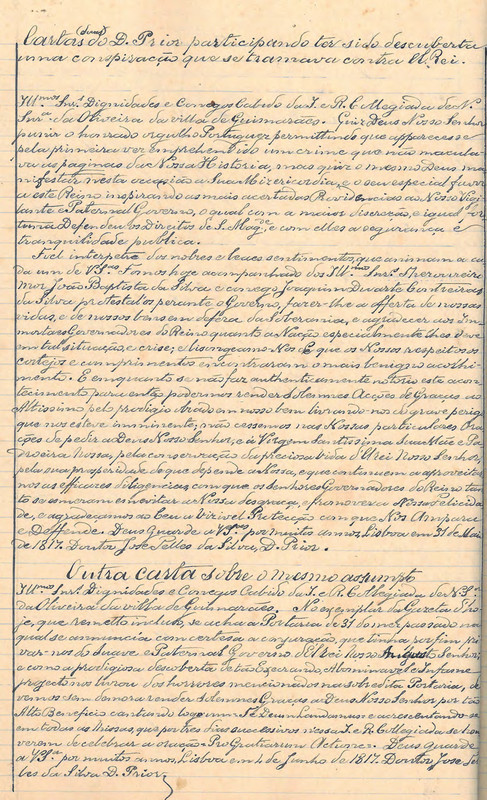 Cartas (duas) do D. Prior participando ter sido descuberta
uma conspiração que se tramava contra El Rei.
Illmos Snrs. Dignidades e Conegos Cabido da I. e R. Collegiada de N.
Snrª da Oliveira da villa de Guimarães. Quiz Deus Nosso Senhor
punir o honrado orgulho Portuguez permittindo que apparecesse
pela primeira vez emprehendido um crime que não macula-
va as paginas da Nossa Historia, mas quiz o mesmo Deus ma-
nifestar nesta occasião a Sua Misericordia, e o seu especial favor
a este Reino inspirando as mais acertadas Providencias ao Nosso Vigi-
lante e Paternal Governo, o qual com a maior discreção, e igual for-
tuna Defendeu os Direitos de S. Magde, e com elles a segurança e
tranquilidade publica.
Fiel interprete dos nobres e leaes sentimentos, que animam a ca-
da um de VSas fomos hoje acompanhado dos Illmos Snrs. Thesoureiro
Mor João Baptista da Silva e conego Joaquim Duarte Contreiras
da Silva protestalos perante o Governo, fazer-lhe a offerta de nossas
vidas, e de nossos bens em defeza da Soberania, e agradecer aos Im-
mortaes Governadores do Reino quanto a Nação especialmente lhes deve
em tal situação, e crise; e lisongeamo Nos E que os Nossos respeitosos
cortejos e cumprimentos encontraram o mais benigno acolhi-
mento. E emquanto se não faz authenticamente notorio este acon-
tecimento para então podermos render solemnes Acções de Graças ao
Altissimo pelo prodigio obrado em nosso bem livrando-nos do grave perigo
que nos esteve imminente, não cessemos nas Nossas particulares Ora-
ções de pedir a Deus Nosso Senhor, e á Virgem Santissima Sua Mãe e Pa-
droeira Nossa, pela conservação da preciosa vida d'Elrei Nosso Senhor,
pela sua prosperidade de que depende a Nossa, e que continuem a aproveitar-
nos as efficazes diligencias com que os senhores Governadores do Reino tan-
to se esmeram em evitar a Nossa desgraça, e promover a Nossa Felicida-
de, e agradeçamos ao Ceu a vizivel Protecção com que Nos Ampara
e Deffende. Deus Guarde a VSas por muitos annos, Lisboa em 31 de Maio
de 1817. Doutor José Telles da Silva, D. Prior.
Outra carta sobre o mesmo assumpto
Illmos Snrs. Dignidades e Conegos Cabido da I. e R. Collegiada de N. Srª
da Oliveira da villa de Guimarães. No exemplar da Gazeta d'ho-
je, que remetto incluso, se acha a Portaria de 31 do mez passado na
qual se annuncia com certeza a conjuração, que tinha por fim pri-
var-nos do suave e Paternal Governo d'Elrei Nosso Augusto Senhor;
e como a prodigiosa descoberta de tão Execrando, Abominavel e Infame
projecto nos livrou dos horrores mencionados na sobredita Portaria, de-
vemos sem demora render solemnes Graças a Deus Nosso Senhor por tão
Alto Beneficio cantando logo um Te Deum Laudamus e accrescentando-se
em todas as Missas que por tres dias successivos nessa I. e R. Collegiada se hou-
verem de celebrar a oração - Pro Gratiarum Actione. Deus guarde
a VSas por muitos annos, Lisboa em 4 de Junho de 1817. Doutor José Tel-
les da Silva D. Prior.